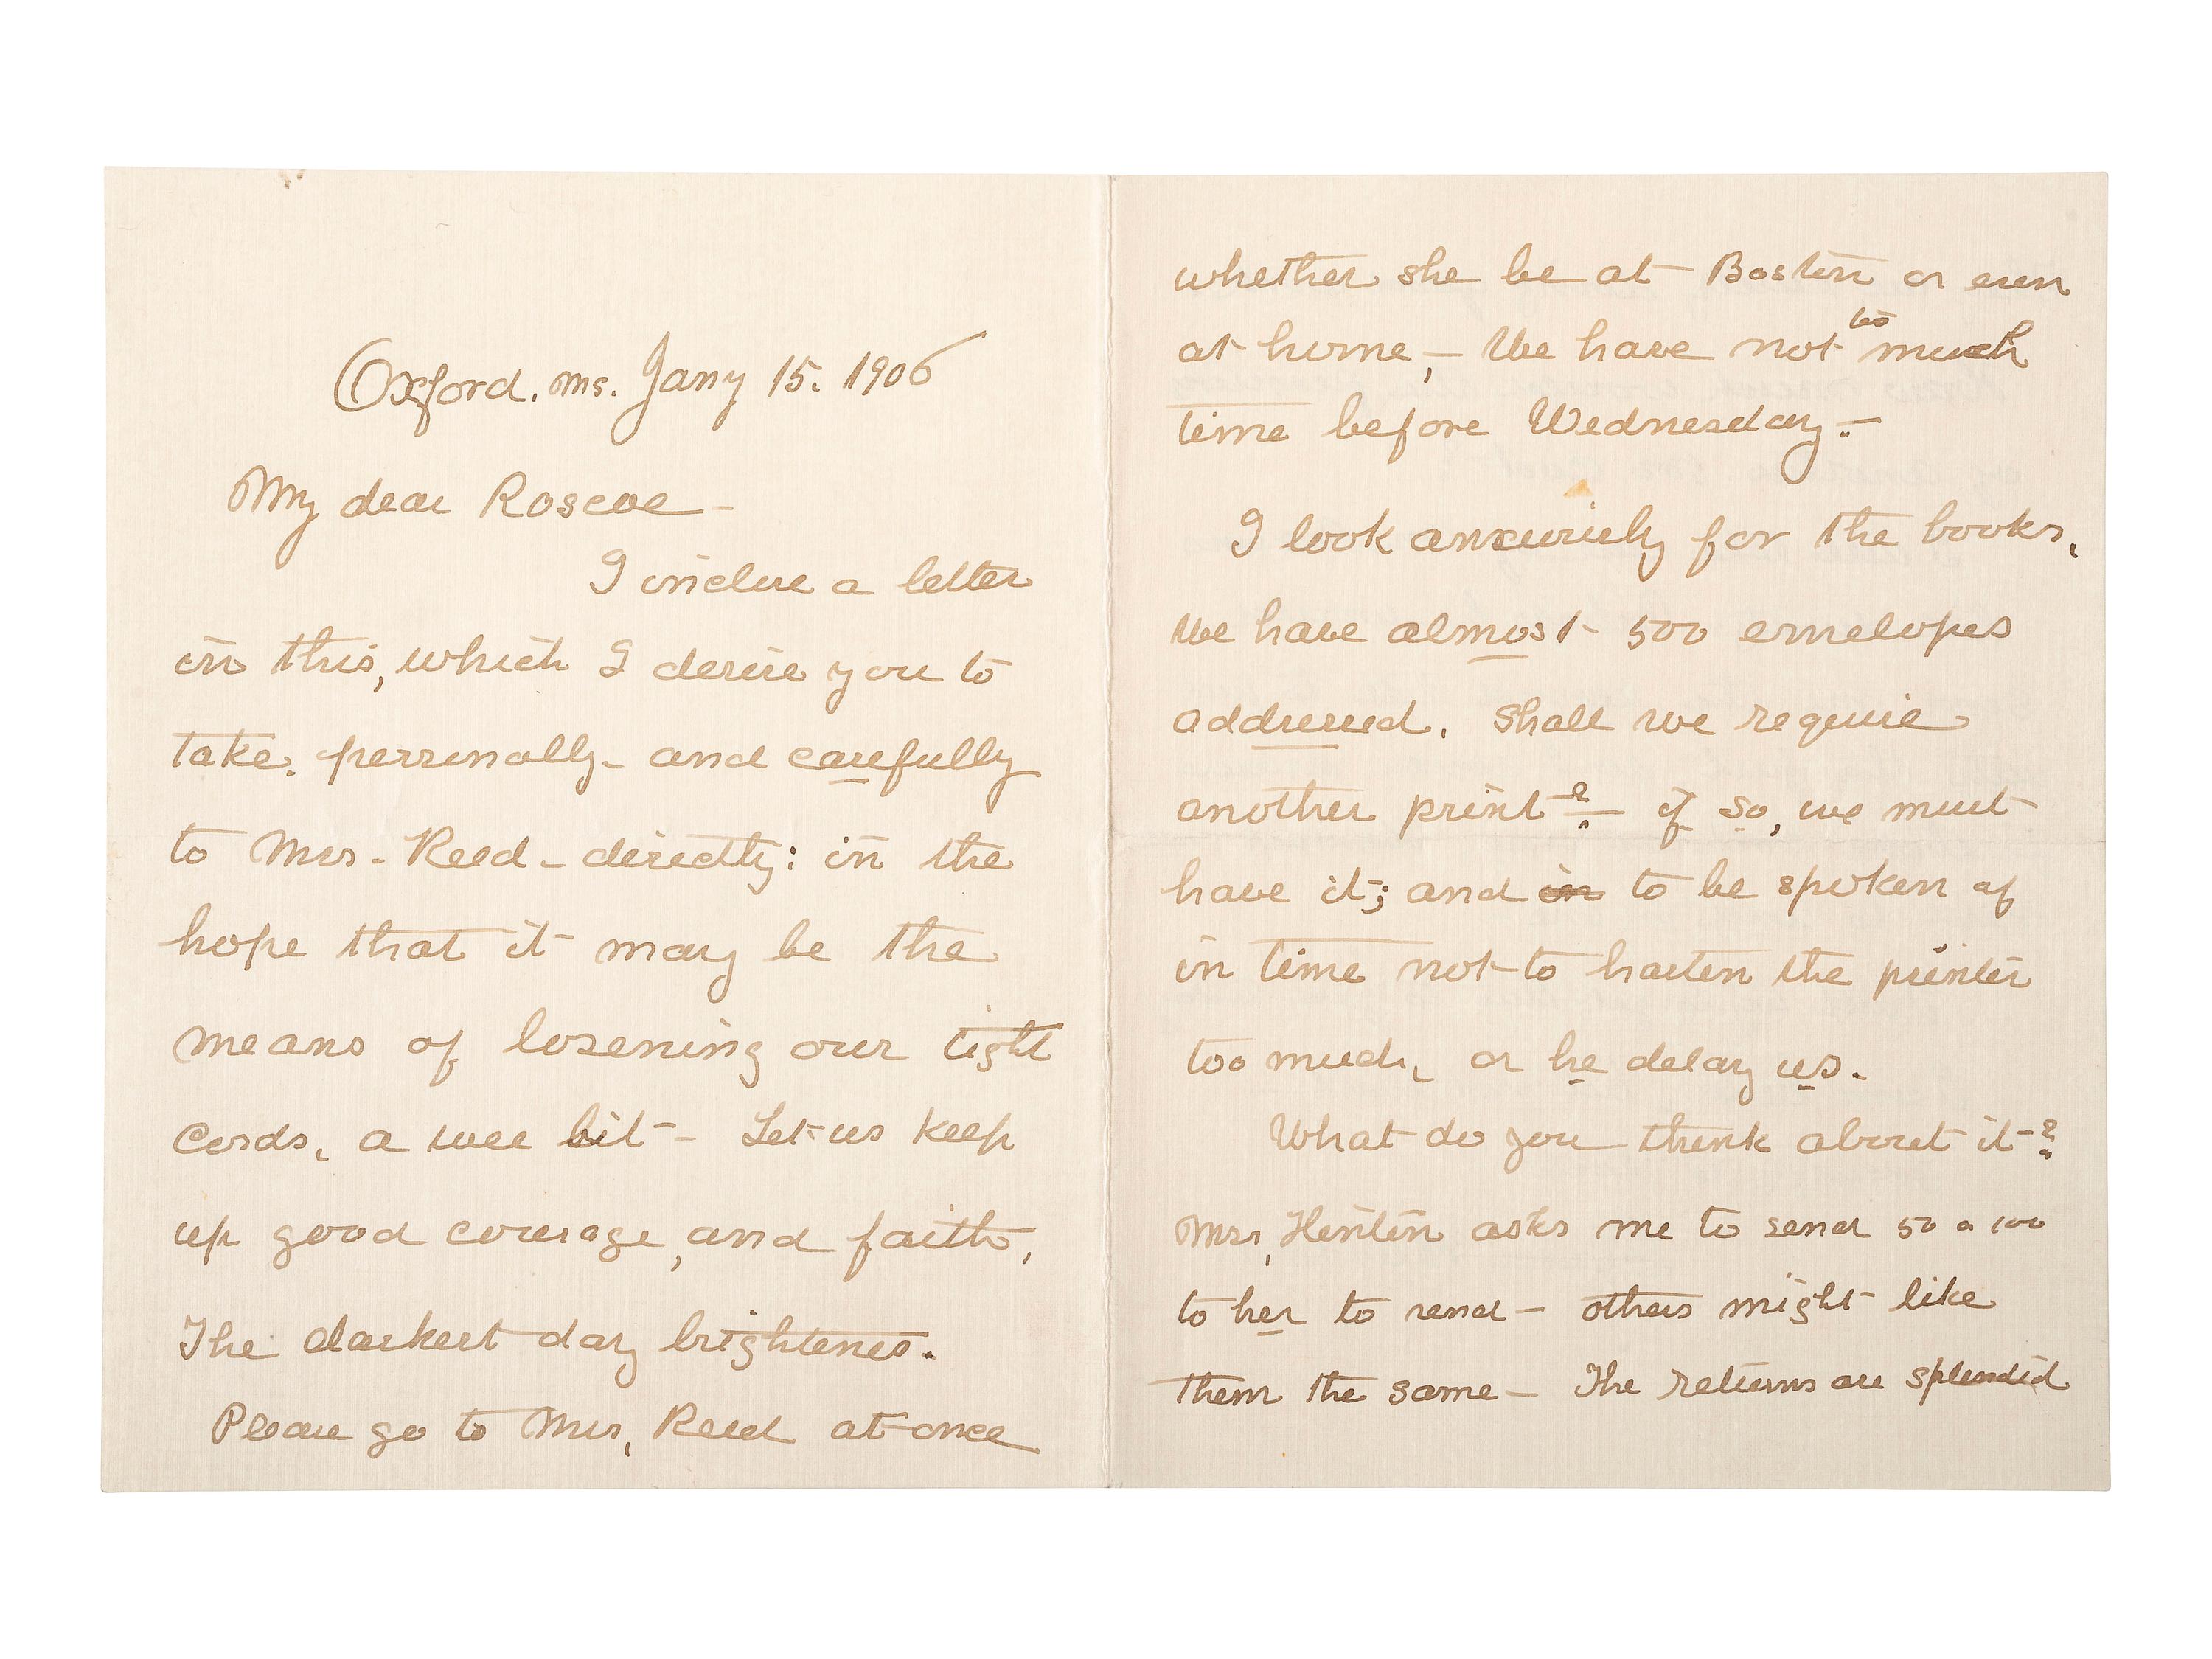 Oxford. Ms. Jany 15. 1906
My dear Roscoe –
I inclose a letter
in this, which I desire you to
take. personally – and carefully
to Mrs. Reed – directly: in the
hope that it may be the
means of losening our tight
cords, a wee bit – Let us keep
up good courage, and faith,
The darkest day brightenes.
Please go to Mrs, Reed at once
whether she be at Boston or even
at home, – We have not too much
time before Wednesday. –
I look anxiously for the books,
we have almost 500 envelopes
addressed. Shall we require
another print? – if so, we must
have it; and in to be spoken of
in time not to hasten the printer
too much, or he delay us.
What do you think about it?
Mrs, Hinton asks me to send 50 a 100
to her to send – others might like
them the same – The returns are splendid